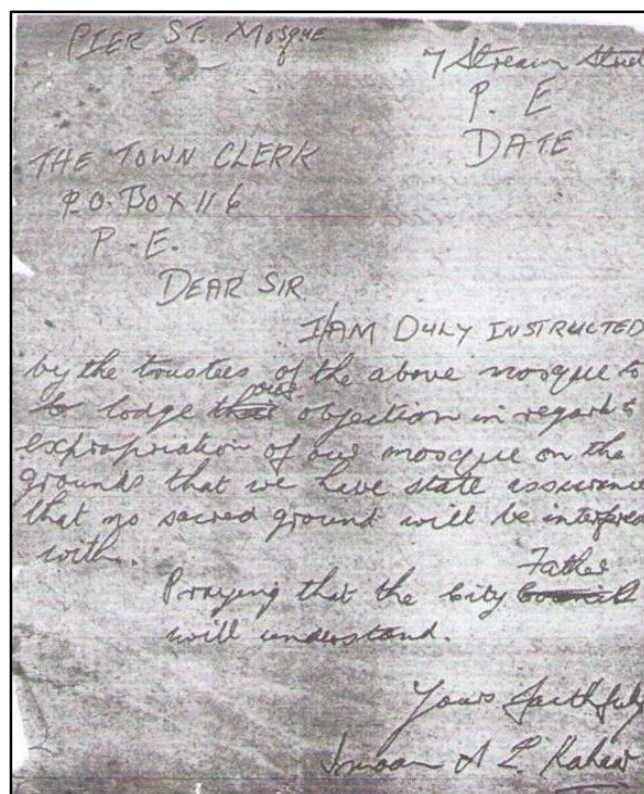 PIER ST. Mosque
7 Stream Street
P. E
DATE
THE TOWN CLERK
P.O. BOX 116
P.E.
DEAR SIR
I AM DULY INSTRUCTED
by the trustees of the above mosque to
to lodge their our objection in regard to
expropriation of our mosque on the
grounds that we have state assurance
that no sacred ground will be interfered
with.
Praying that the City Council Father
will understand.
Yours faithfully
Imaam A